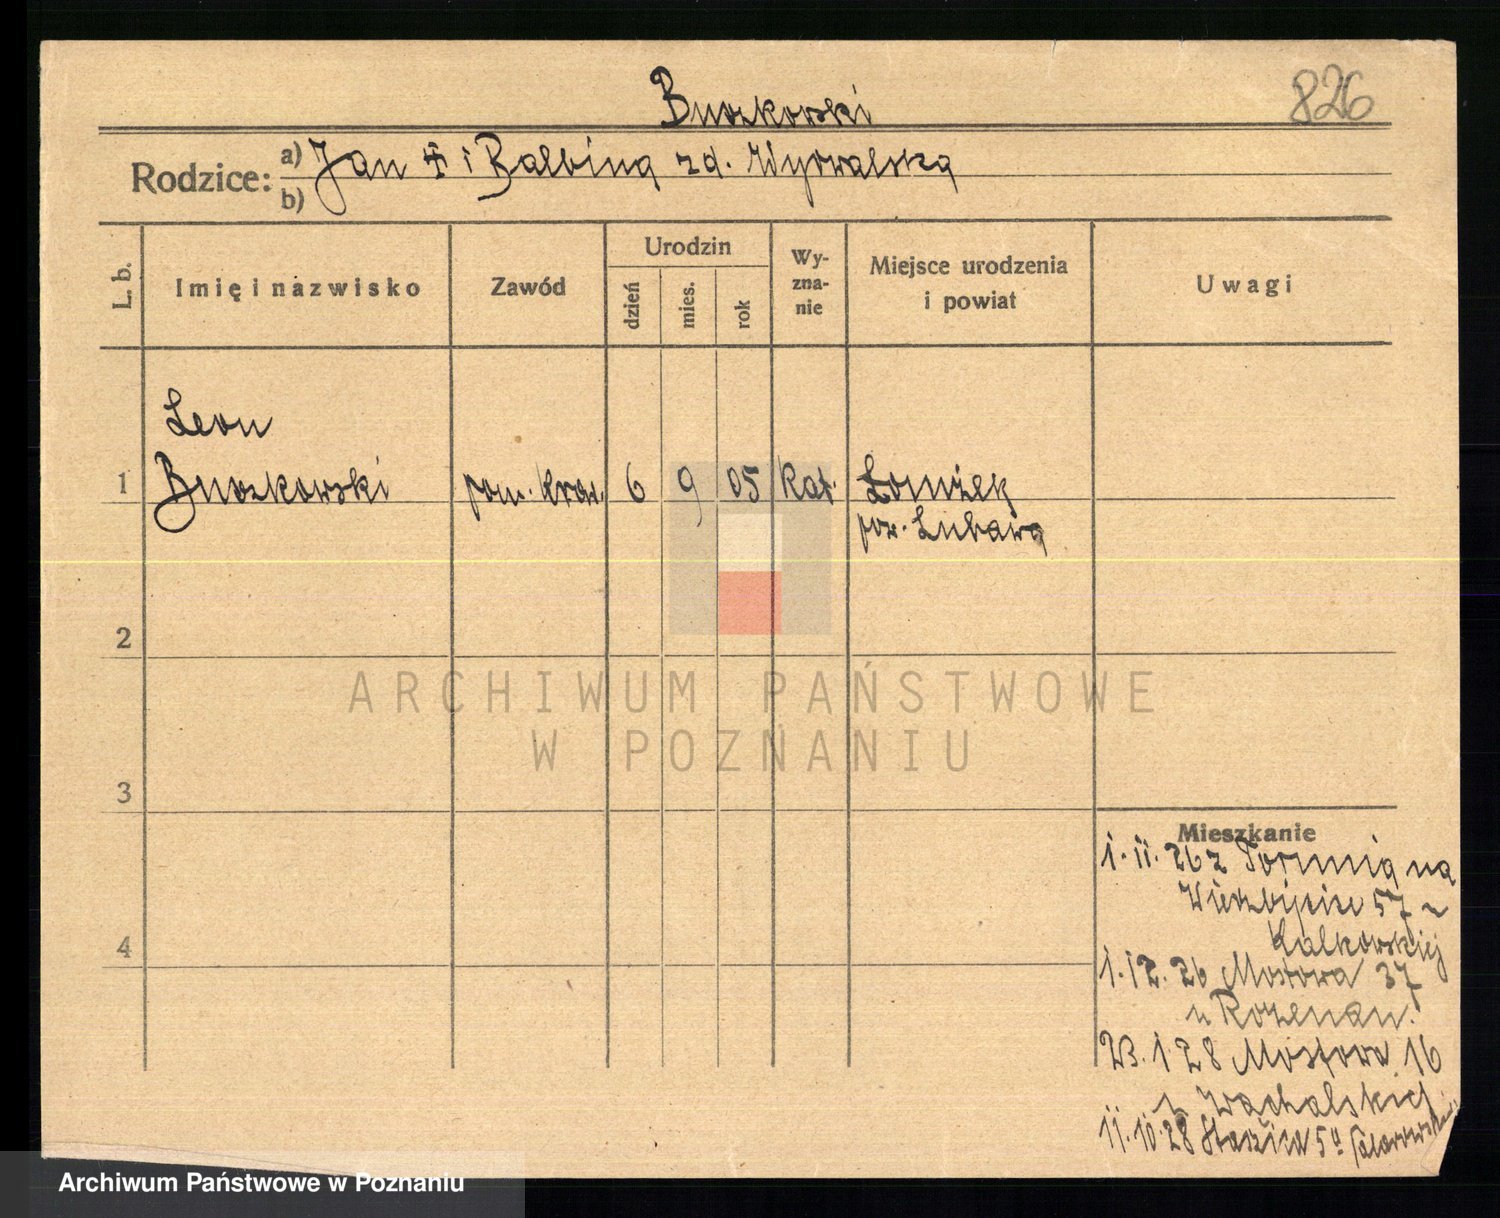 Buszkowski
826
Rodzice: a) Jan i Balbina zd. Wyrwalska
b)
L. b.
Imię i nazwisko
Zawód
Urodzin
dzień
mies.
rok
Wy-
zna-
nie
Miejsce urodzenia
i powiat
Uwagi
Leon
1 Buszkowski pom. kraw. 6 9 05 Kat.
pow. Lubawa
2
3
4
Mieszkanie
1.11.26 z Torunia na
57
1.12.26 Mostowa 37
u Rozenan.
23.1.28 Mostowa 16
11.10.28 Staszica
ARCHIWUM PAŃSTWOWE
W POZNANIU
Archiwum Państwowe w Poznaniu